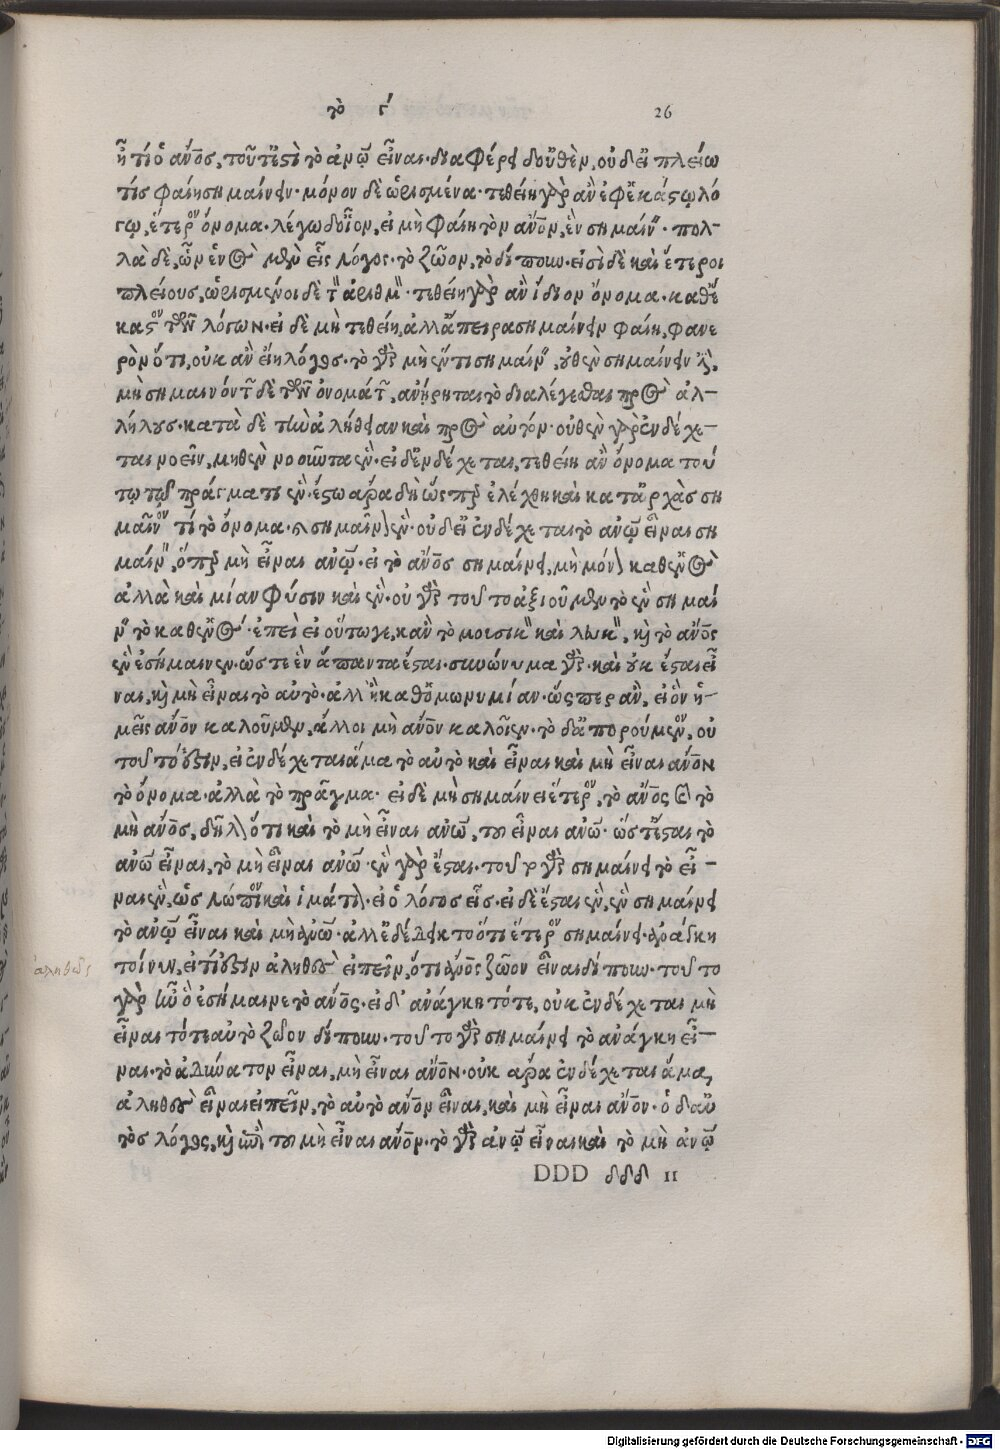 τὸ γ′ 26
ᾖ τί ὁ ἄνο̄ς, τοῦτ' ἔςι τὸ ἀνω̄ εἶναι. διαφέρει δ' οὐθὲν, οὐδ' εἰ πλείω
τίς φαίη σημαίνειν· μόνον δὲ ὡρισμένα. τεθείη γὰρ ἂν ἐφ' ἑκάςῳ λό
γῳ, ἕτερον ὄνομα. λέγω δ' οἷον, εἰ μὴ φαίη τὸν ἄνο̄ν, ἓν σημαίνειν. πολ-
λὰ δὲ, ὧν ἑνὸς μὲν εἷς λόγος. τὸ ζῶον, τὸ δίπουν. εἰσὶ δὲ καὶ ἕτεροι
πλείους, ὡρισμένοι δὲ τὸν ἀριθμὸν. τεθείη γὰρ ἂν ἴδιον ὄνομα. καθ' ἕ
καςον τῶν λόγων. εἰ δὲ μὴ τεθείη, ἀλλ' ἄπειρα σημαίνειν φαίη, φανε
ρὸν ὅτι, οὐκ ἂν εἴη λόγος. τὸ γὰρ μὴ ἕν τι σημαίνειν, ὀθὲν σημαίνειν ὅξι,
μὴ σημαινόντων δὲ τῶν ὀνομάτων, ἀνῄρηται τὸ διαλέγεσθαι πρὸς ἀλ-
λήλους. κατὰ δὲ τὴν ἀλήθειαν καὶ πρὸς αὑτόν. οὐθὲν γὰρ ἐνδέχε-
ται νοεῖν, μηθὲν νοοῦντα ἕν. εἰ δ' ἐνδέχεται, τεθείη ἂν ὄνομα τού
τῳ τῷ πράγματι ἕν. ἔςω ἄρα δὴ ὥσπερ ἐλέχθη καὶ κατ' ἀρχὰς ση
μαῖνόν τί τὸ ὄνομα. καὶ σημαῖνον ἕν. οὐ δ' εἰ ἐνδέχεται τὸ ἀνω̄ εἶναι ση
μαίνειν, ὅπερ μὴ εἶναι ἀνω̄. εἰ τὸ ἄνο̄ς σημαίνει, μὴ μόνον καθ' ἑνὸς
ἀλλὰ καὶ μίαν φύσιν καὶ ἕν. οὐ γὰρ τοῦτο ἀξιοῦμεν τὸ ἓν σημαί
νειν τὸ καθ' ἑνὸς. ἐπεὶ εἰ οὕτω γε, κἂν τὸ μουσικὸν καὶ λευκὸν, κ̀ τὸ ἄνο̄ς
ἓν ἐσήμαινεν. ὥςτε ἓν ἅπαντα ἔςαι. συνώνυμα γὰρ. καὶ οὐκ ἔςαι εἶ
ναι, κ̀ μὴ εἶναι τὸ αὐτὸ. ἀλλ' ἢ καθ' ὁμωνυμίαν. ὥσπερ ἂν, εἰ ὃν ἡ-
μεῖς ἄνο̄ν καλοῦμεν, ἄλλοι μὴ ἄνο̄ν καλοῖεν. τὸ δ' ἀπορούμενον, οὐ
τοῦτό ὅξιν, εἰ ἐνδέχεται ἅμα τὸ αὐτὸ καὶ εἶναι καὶ μὴ εἶναι ἄνο̄ν
τὸ ὄνομα. ἀλλὰ τὸ πρᾶγμα. εἰ δὲ μὴ σημαίνει ἕτερον, τὸ ἄνο̄ς καὶ τὸ
μὴ ἄνο̄ς, δῆλον ὅτι καὶ τὸ μὴ εἶναι ἀνω̄, του εἶναι ἀνω̄. ὥςτ' ἔςαι τὸ
ἀνω̄ εἶναι, τὸ μὴ εἶναι ἀνω̄. ἓν γὰρ ἔςαι. τοῦτο γὰρ σημαίνει τὸ εἶ-
ναι ἓν, ὡς λώπιον καὶ ἱμάτιον. εἰ ὁ λόγος εἷς. εἰ δὲ ἔςαι ἓν, ἓν σημαίνει
τὸ ἀνω̄ εἶναι καὶ μὴ ἀνω̄. ἀλλ' ἐδέδεικτο ὅτι ἕτερον σημαίνει. ἀνάγκη
τοίνυν, εἰ τί ὅξιν ἀληθὲς εἰπεῖν, ὅτι ἄνο̄ς ζῶον εἶναι δίπουν. τοῦτο
γὰρ ἦν ὃ ἐσήμαινε τὸ ἄνο̄ς. εἰ δ' ἀνάγκη τότε, οὐκ ἐνδέχεται μὴ
εἶναι τότε αὐτὸ ζῶον δίπουν. τοῦτο γὰρ σημαίνει τὸ ἀνάγκη εἶ-
ναι. τὸ ἀδύνατον εἶναι, μὴ εἶναι ἄνο̄ν. οὐκ ἄρα ἐνδέχεται ἅμα,
ἀληθὲς εἶναι εἰπεῖν, τὸ αὐτὸ ἄνο̄ν εἶναι, καὶ μὴ εἶναι ἄνο̄ν. ὁ δ' αὐ
τὸς λόγος, κ̀ ἐπὶ του μὴ εἶναι ἄνο̄ν. τὸ γὰρ ἀνω̄ εἶναι καὶ τὸ μὴ ἀνω̄
DDD δδδ II
ἀληθὲς
Digitalisierung gefördert durch die Deutsche Forschungsgemeinschaft - DFG